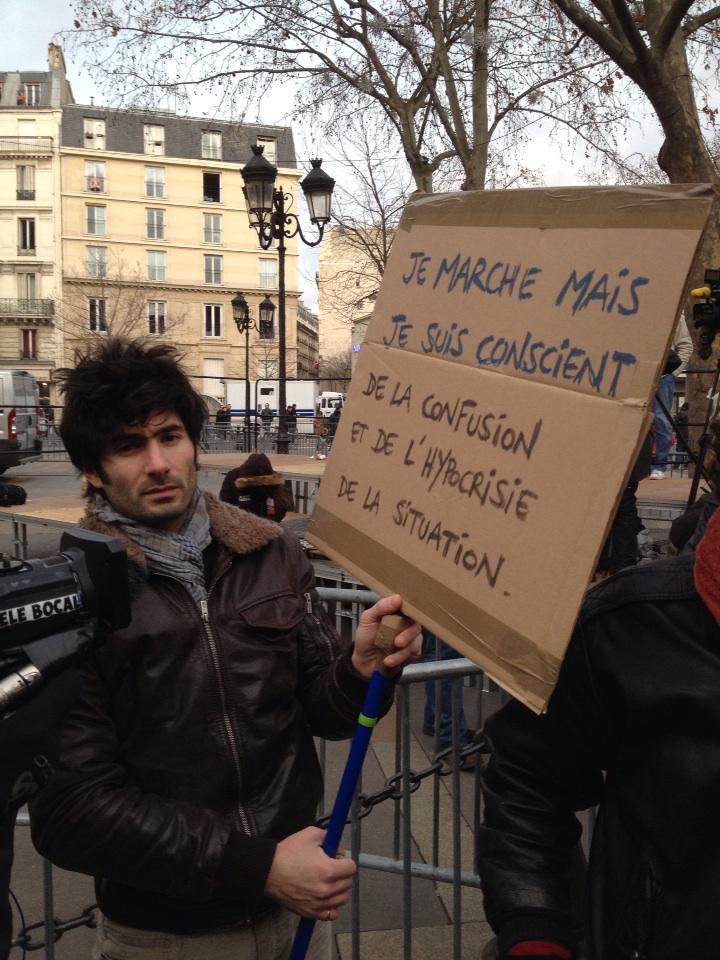 JE MARCHE MAIS
JE SUIS CONSCIENT
DE LA CONFUSION
ET DE L'HYPOCRISIE
DE LA SITUATION.
ELE BOCAL